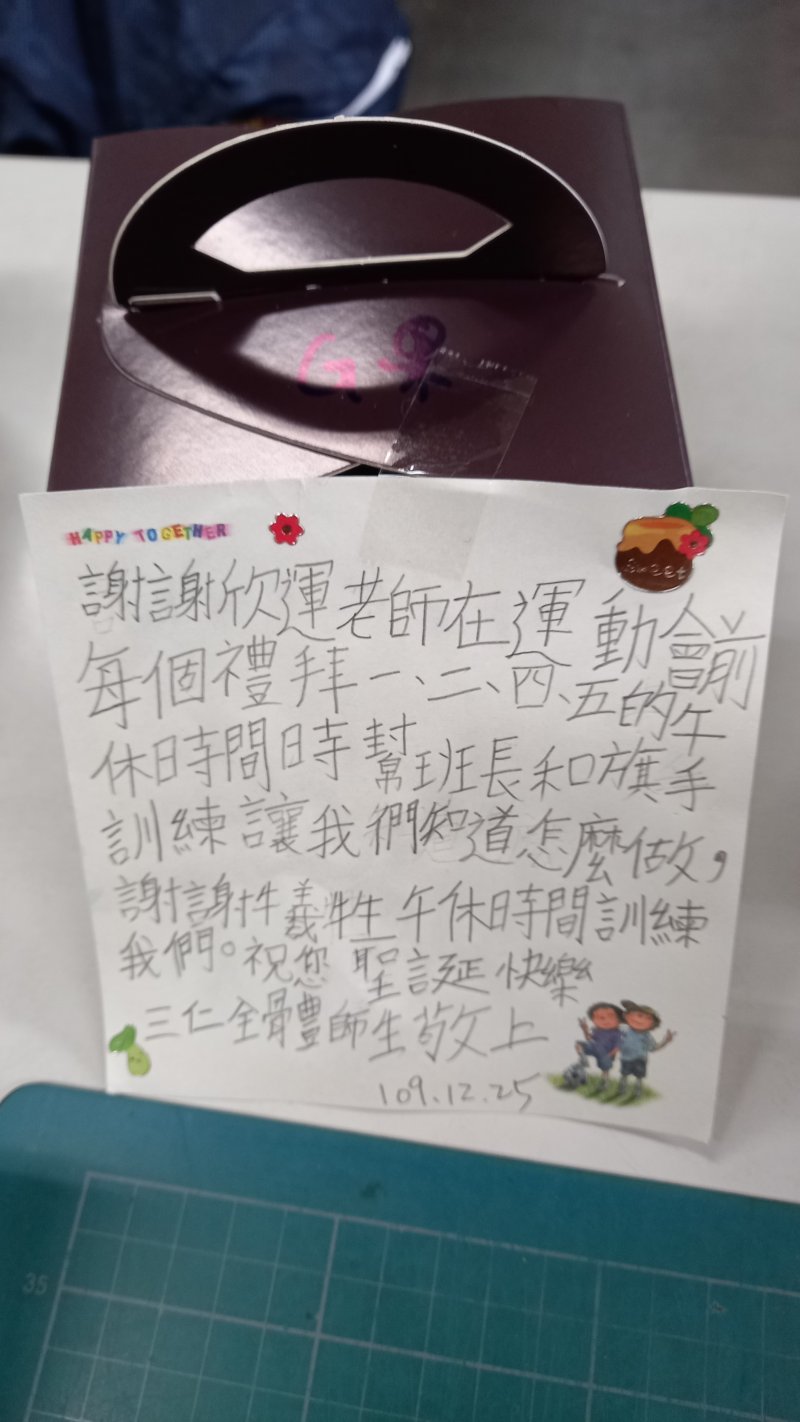 HAPPY TOGETHER
Sweet
謝謝欣運老師在運動會前
每個禮拜一、二、四、五的午
休時間時幫班長和旗手
訓練讓我們知道怎麼做,
謝謝牛義牲午休時間訓練
我們。祝您聖誕快樂
三仁全體師生敬上
109.12.25
35